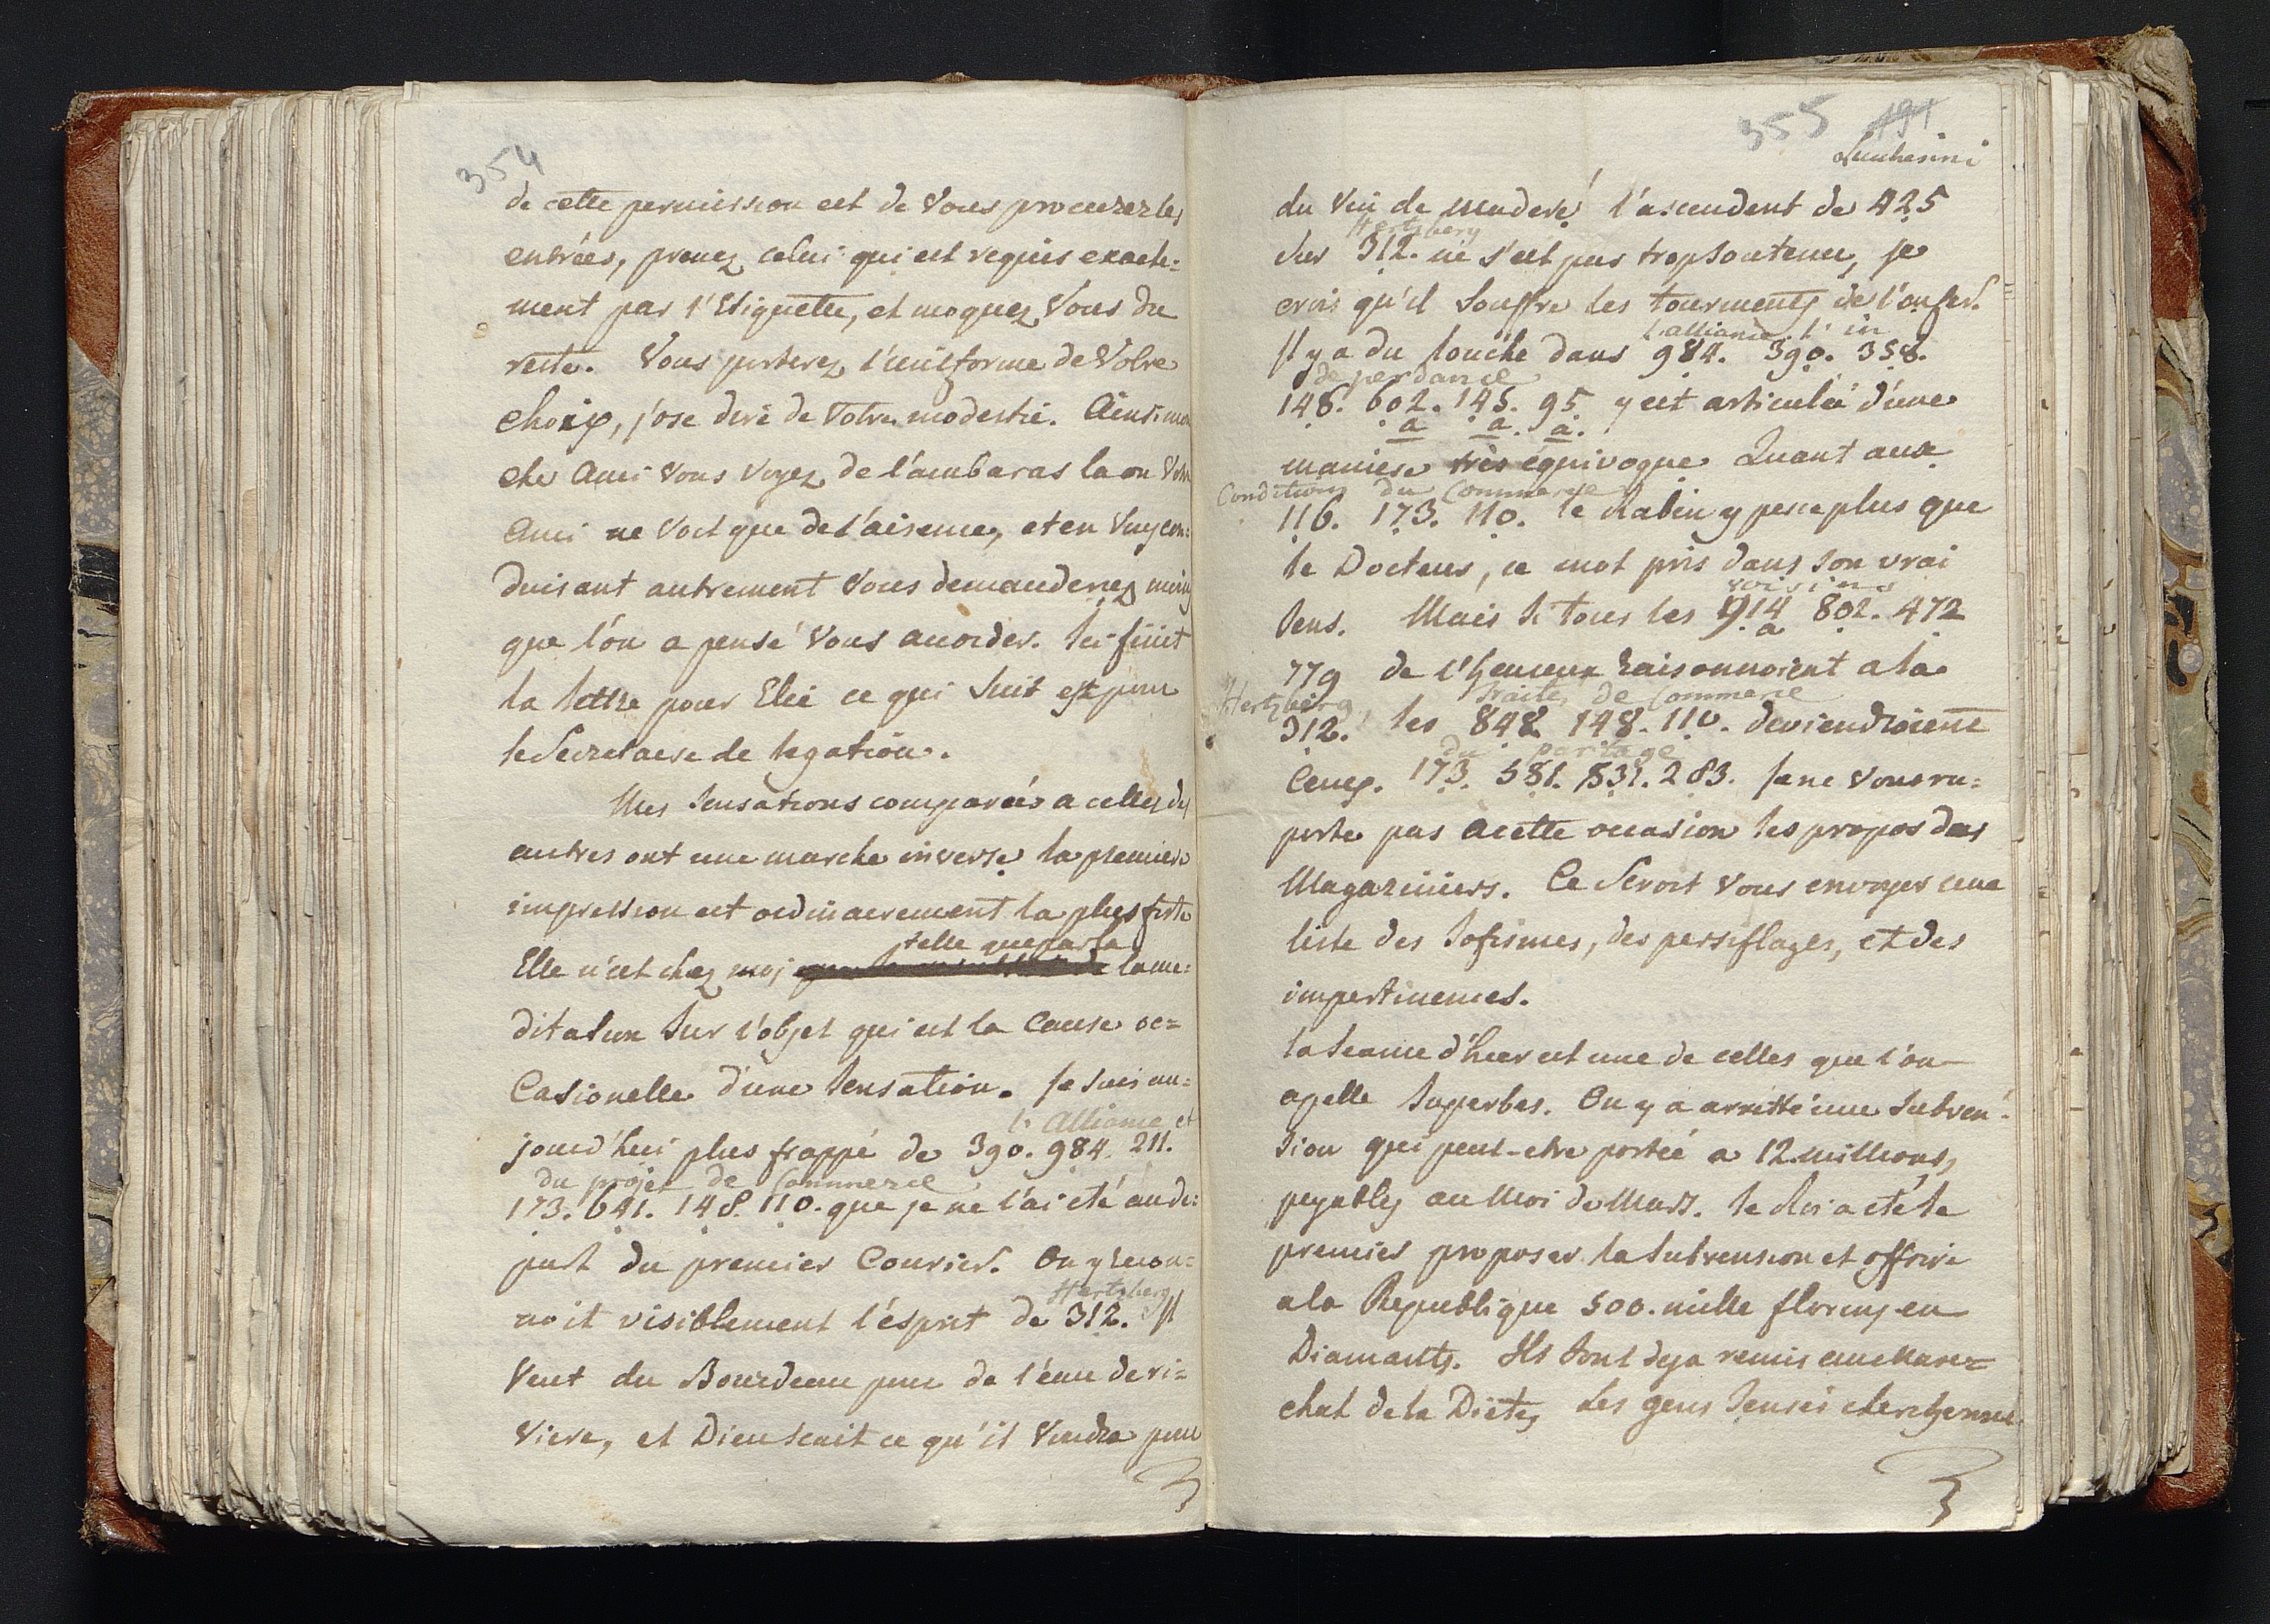 354
de cette permission est de Vous procurer les
entrées, prenez celui qui est requis exacte=
ment par l'Etiquette, et moquez Vous du
reste. Vous porterez l'uniforme de Votre
choix, j'ose dire de Votre modestie. Ainsi mon
cher Ami Vous voyez de l'ambaras la ou Votre
Ami ne Voit que de l'aisence, et en Vuy con=
duisant autrement Vous demanderiez moins
que l'on a pensé Vous acorder. Ici finit
la lettre pour Elie ce qui suit est pour
le Secretaire de legation.
Mes sensations comparées a celles des
autres ont une marche inverse, la premiere
impression est ordinairement la plus forte
telle que par la
Elle n'est chez moj la me=
ditation Sur l'objet qui est la Cause oc=
Casionelle d'une Sensation. Je suis au=
l' Alliance et
jourd'hui plus frappé de 390. 984. 211.
du projet de Commerce
173. 641. 148. 110. que je ne l'ai eté au de=
part du premier Courier. On y recon=
Hertzberg
noit visiblement l'ésprit de 312. Il
Veut du Bourdeau pour de l'eau de ri=
viere, et Dieu scait ce qu'il Voudra pour
355 191
Lucchesini
du Vin de Maderé l'ascendent de 425
Hertzberg
sur 312. ne s'est pas trop soutenu, je
crois qu'il Souffre les tourments de l'enfer.
l'alliance l' in
Il y a du louche dans 984. 390. 358.
de pendance
148. 602. 145. 95 y est articulée d'une
a a. a.
maniere très equivoque Quant aux
Conditions du Commerce
116. 173. 110. le Rabin y pese plus que
le Docteur, ce mot pris dans son vrai
voisins
Sens. Mais si tous les 914 802. 472
a
779 de l'heureux raisonnoient a la
Hertzberg, traités de Commerce
312. les 848 148. 110. deviendroient
du partage
Ceux. 173. 581. 831. 283. Je ne Vous ra=
porte pas a cette occasion les propos des
Magaziniers. Ce Seroit Vous envoyer une
liste des Sofismes, des persiflages, et des
impertinences.
la Seance d'hier est une de celles que l'on
apelle Superbes. On y a arretté une Subven=
sion qui peut-etre portée a 12. millions,
payables au Moi de Mars. le Roi a eté le
premier proposer la Subvension et offrir
a la Republique 500. mille florins en
Diamants. Ils sont deja remis au Mare=
chal de la Diete, Les gens Sensés cherchent